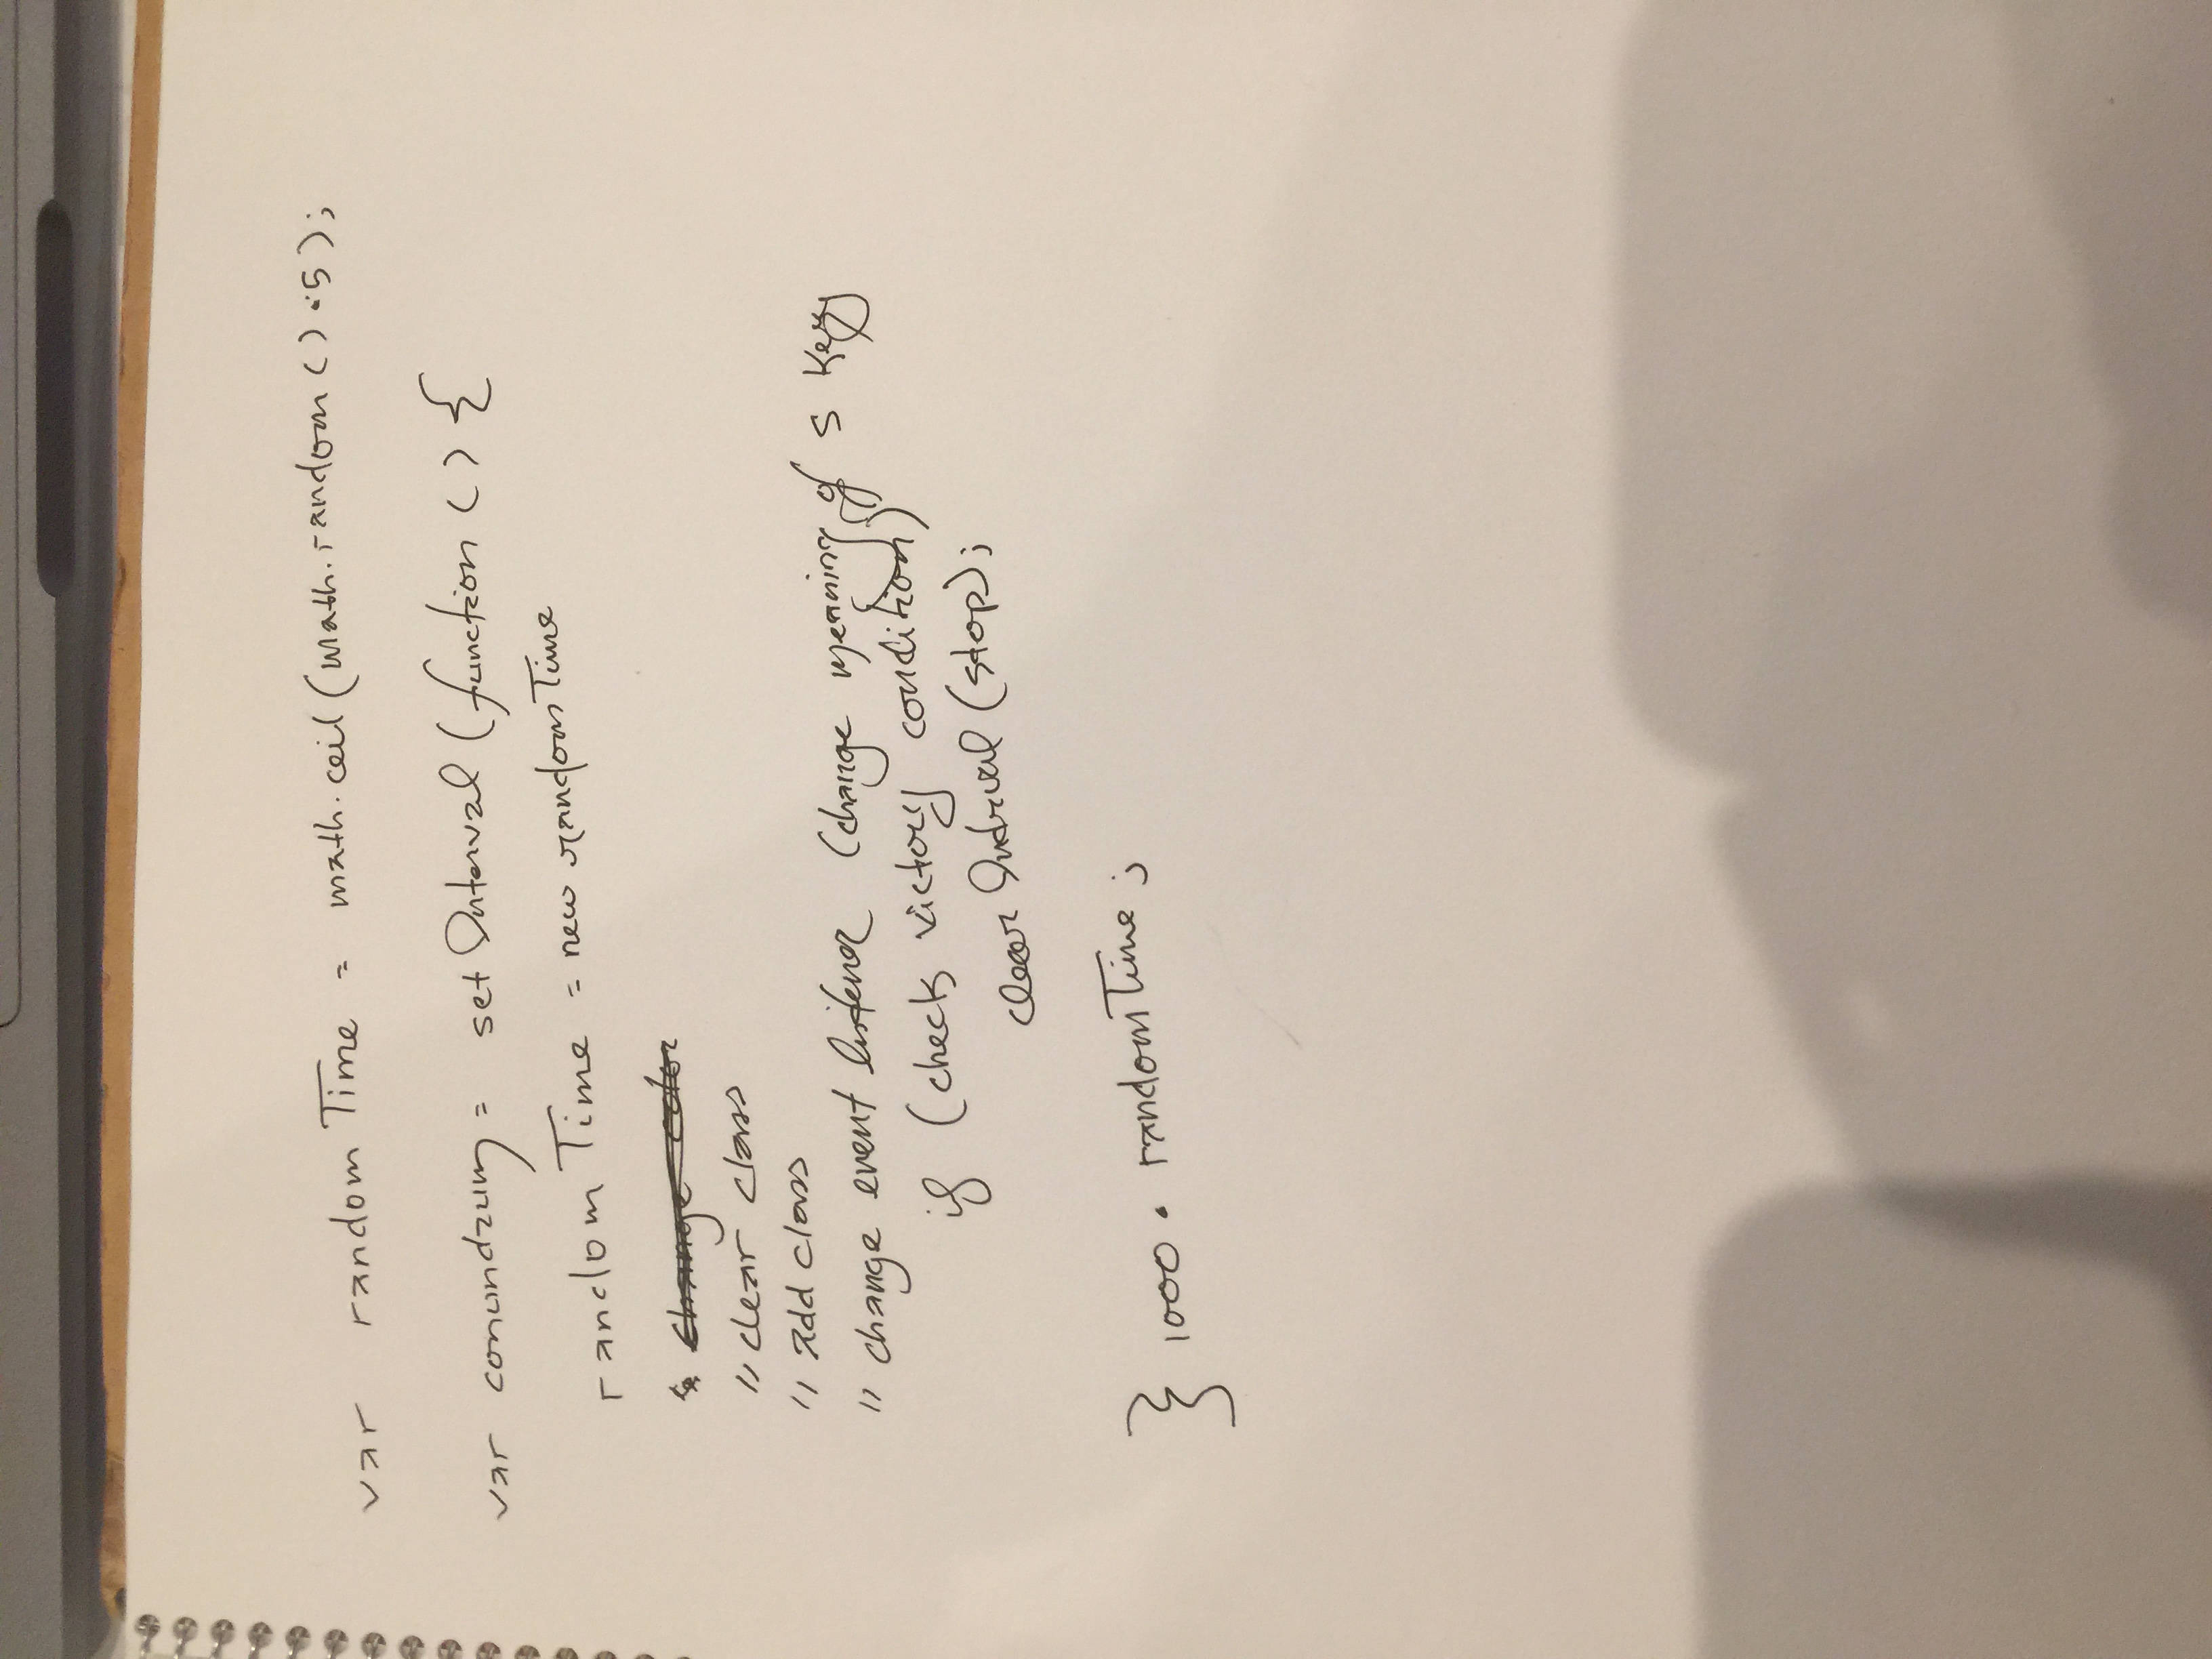 var randomTime = math.ceil(math.random() • 5);
var conundrum = setInterval(function () {
randomTime = new randomTime
change color
// clear class
// add class
// change event listener (change meaning of s key
if (check victory condition)
clearInterval(stop);
} 1000 • randomTime;